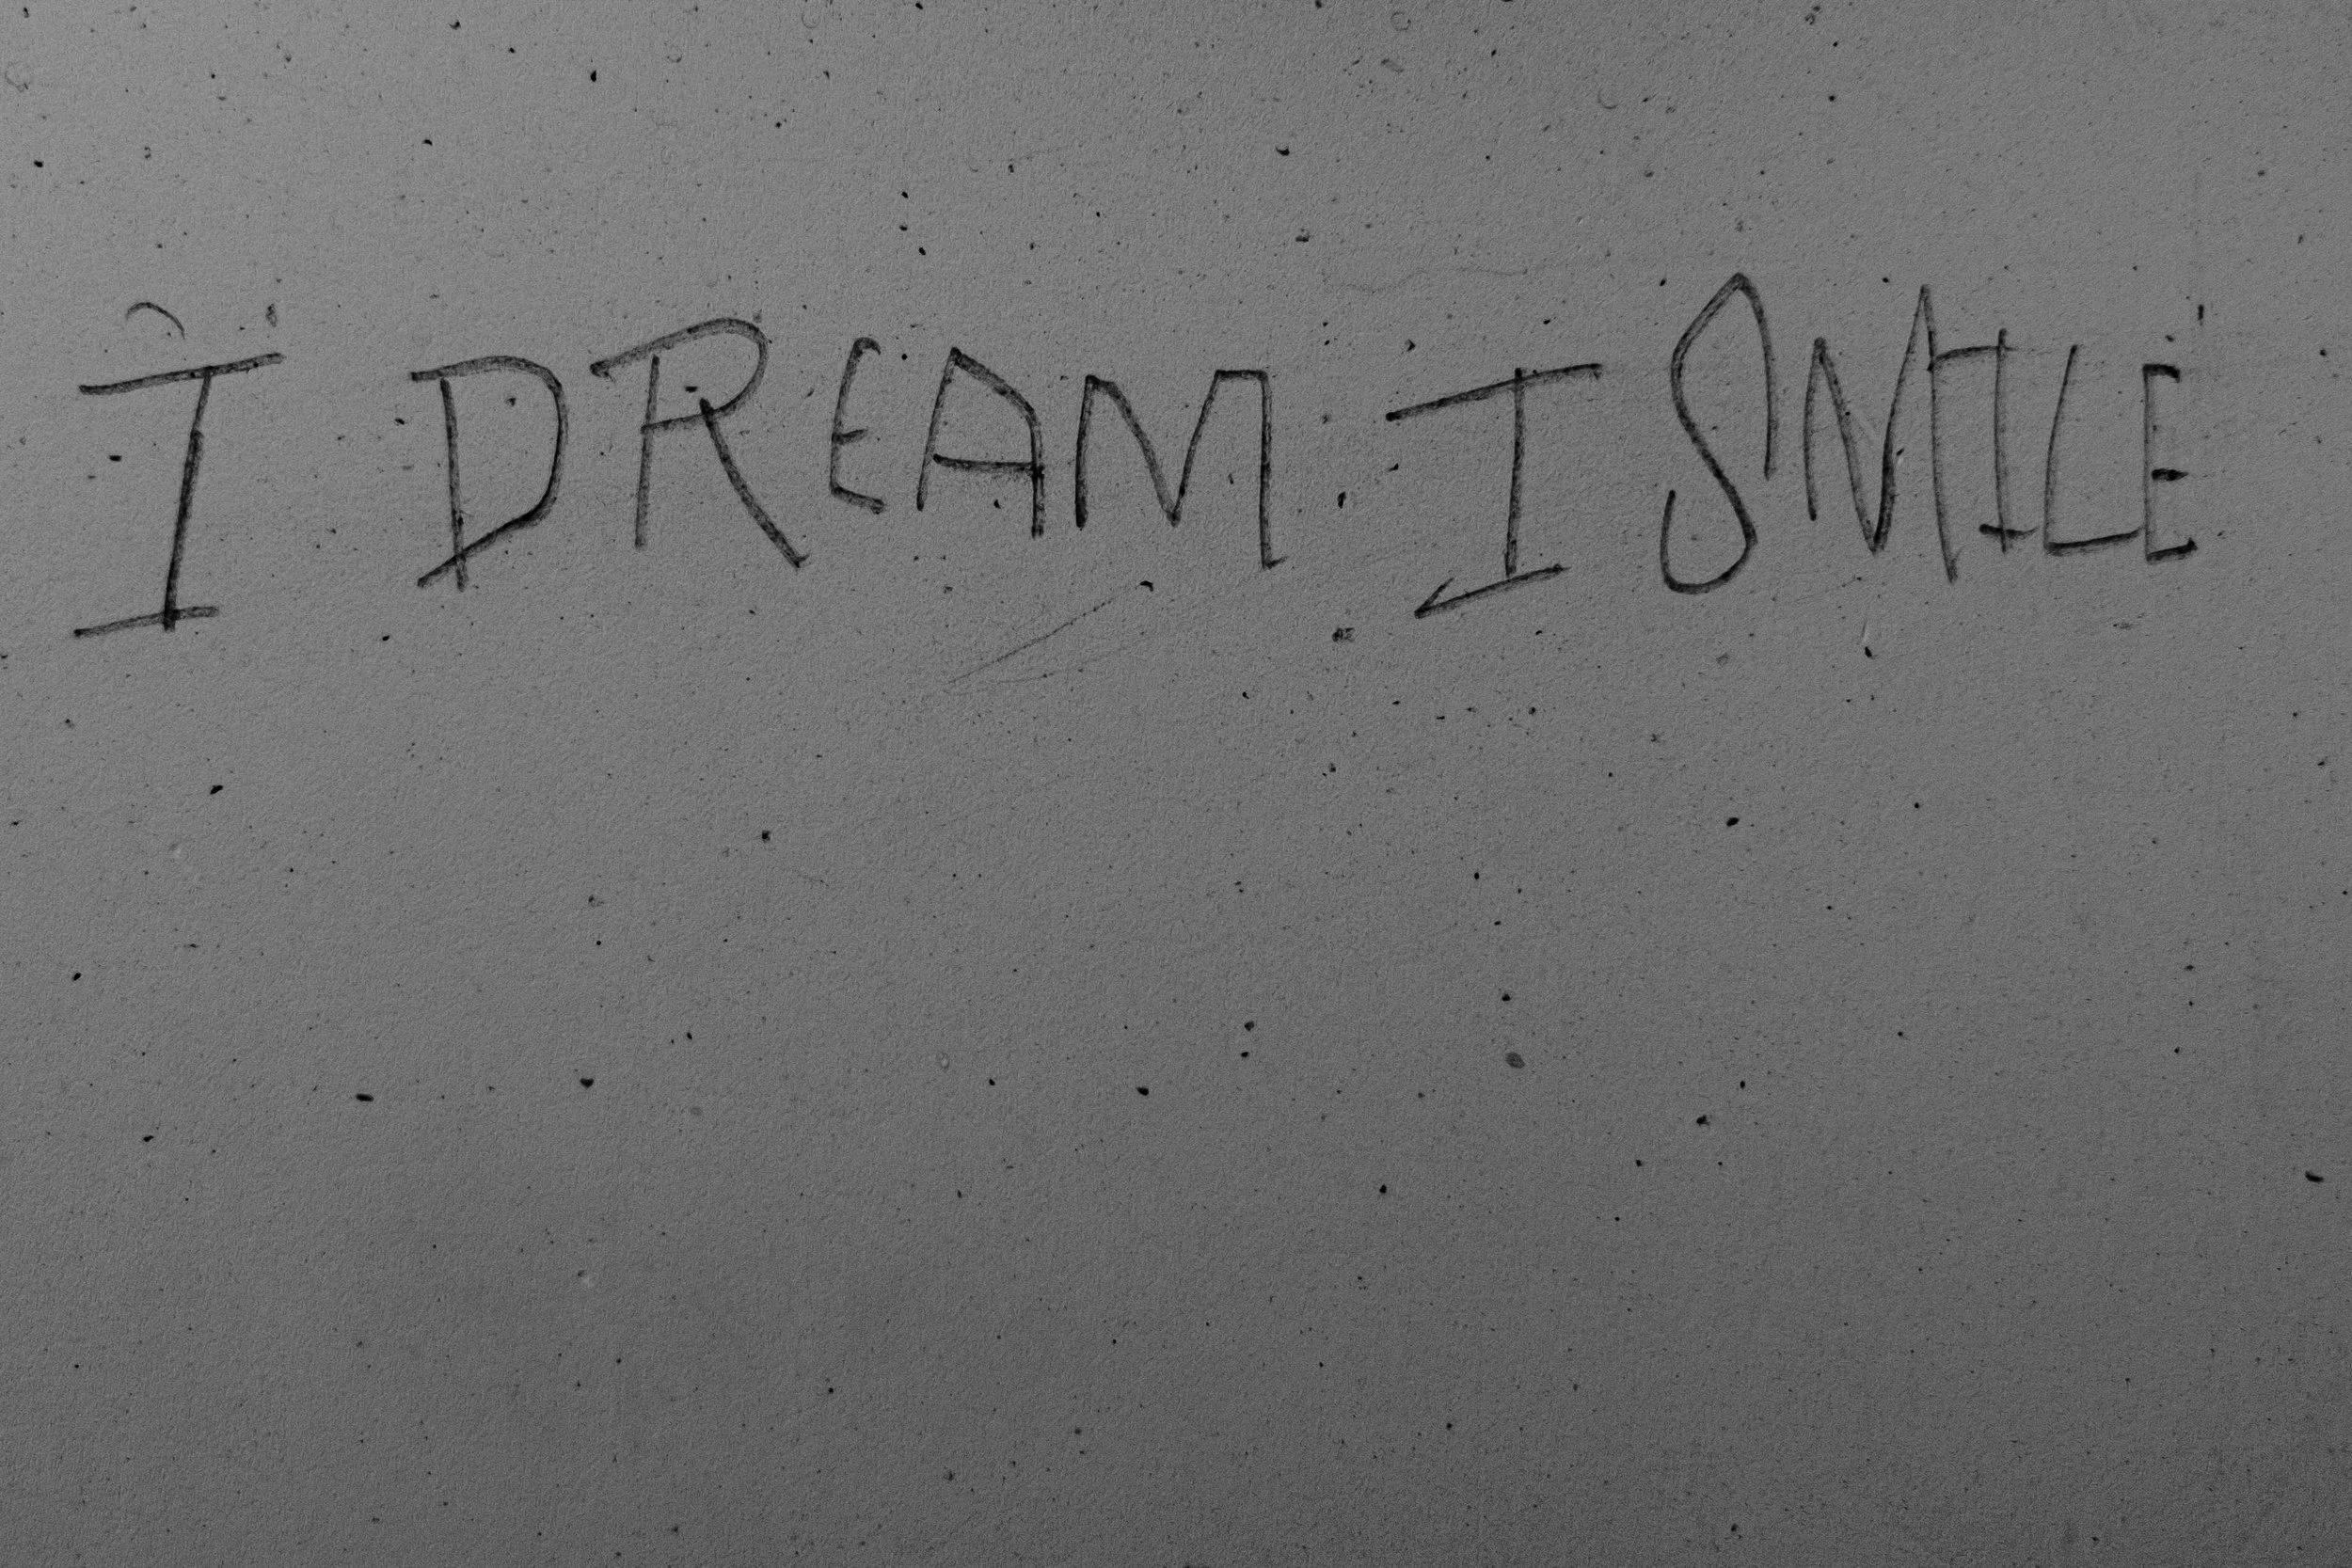 I DREAM I SMILE